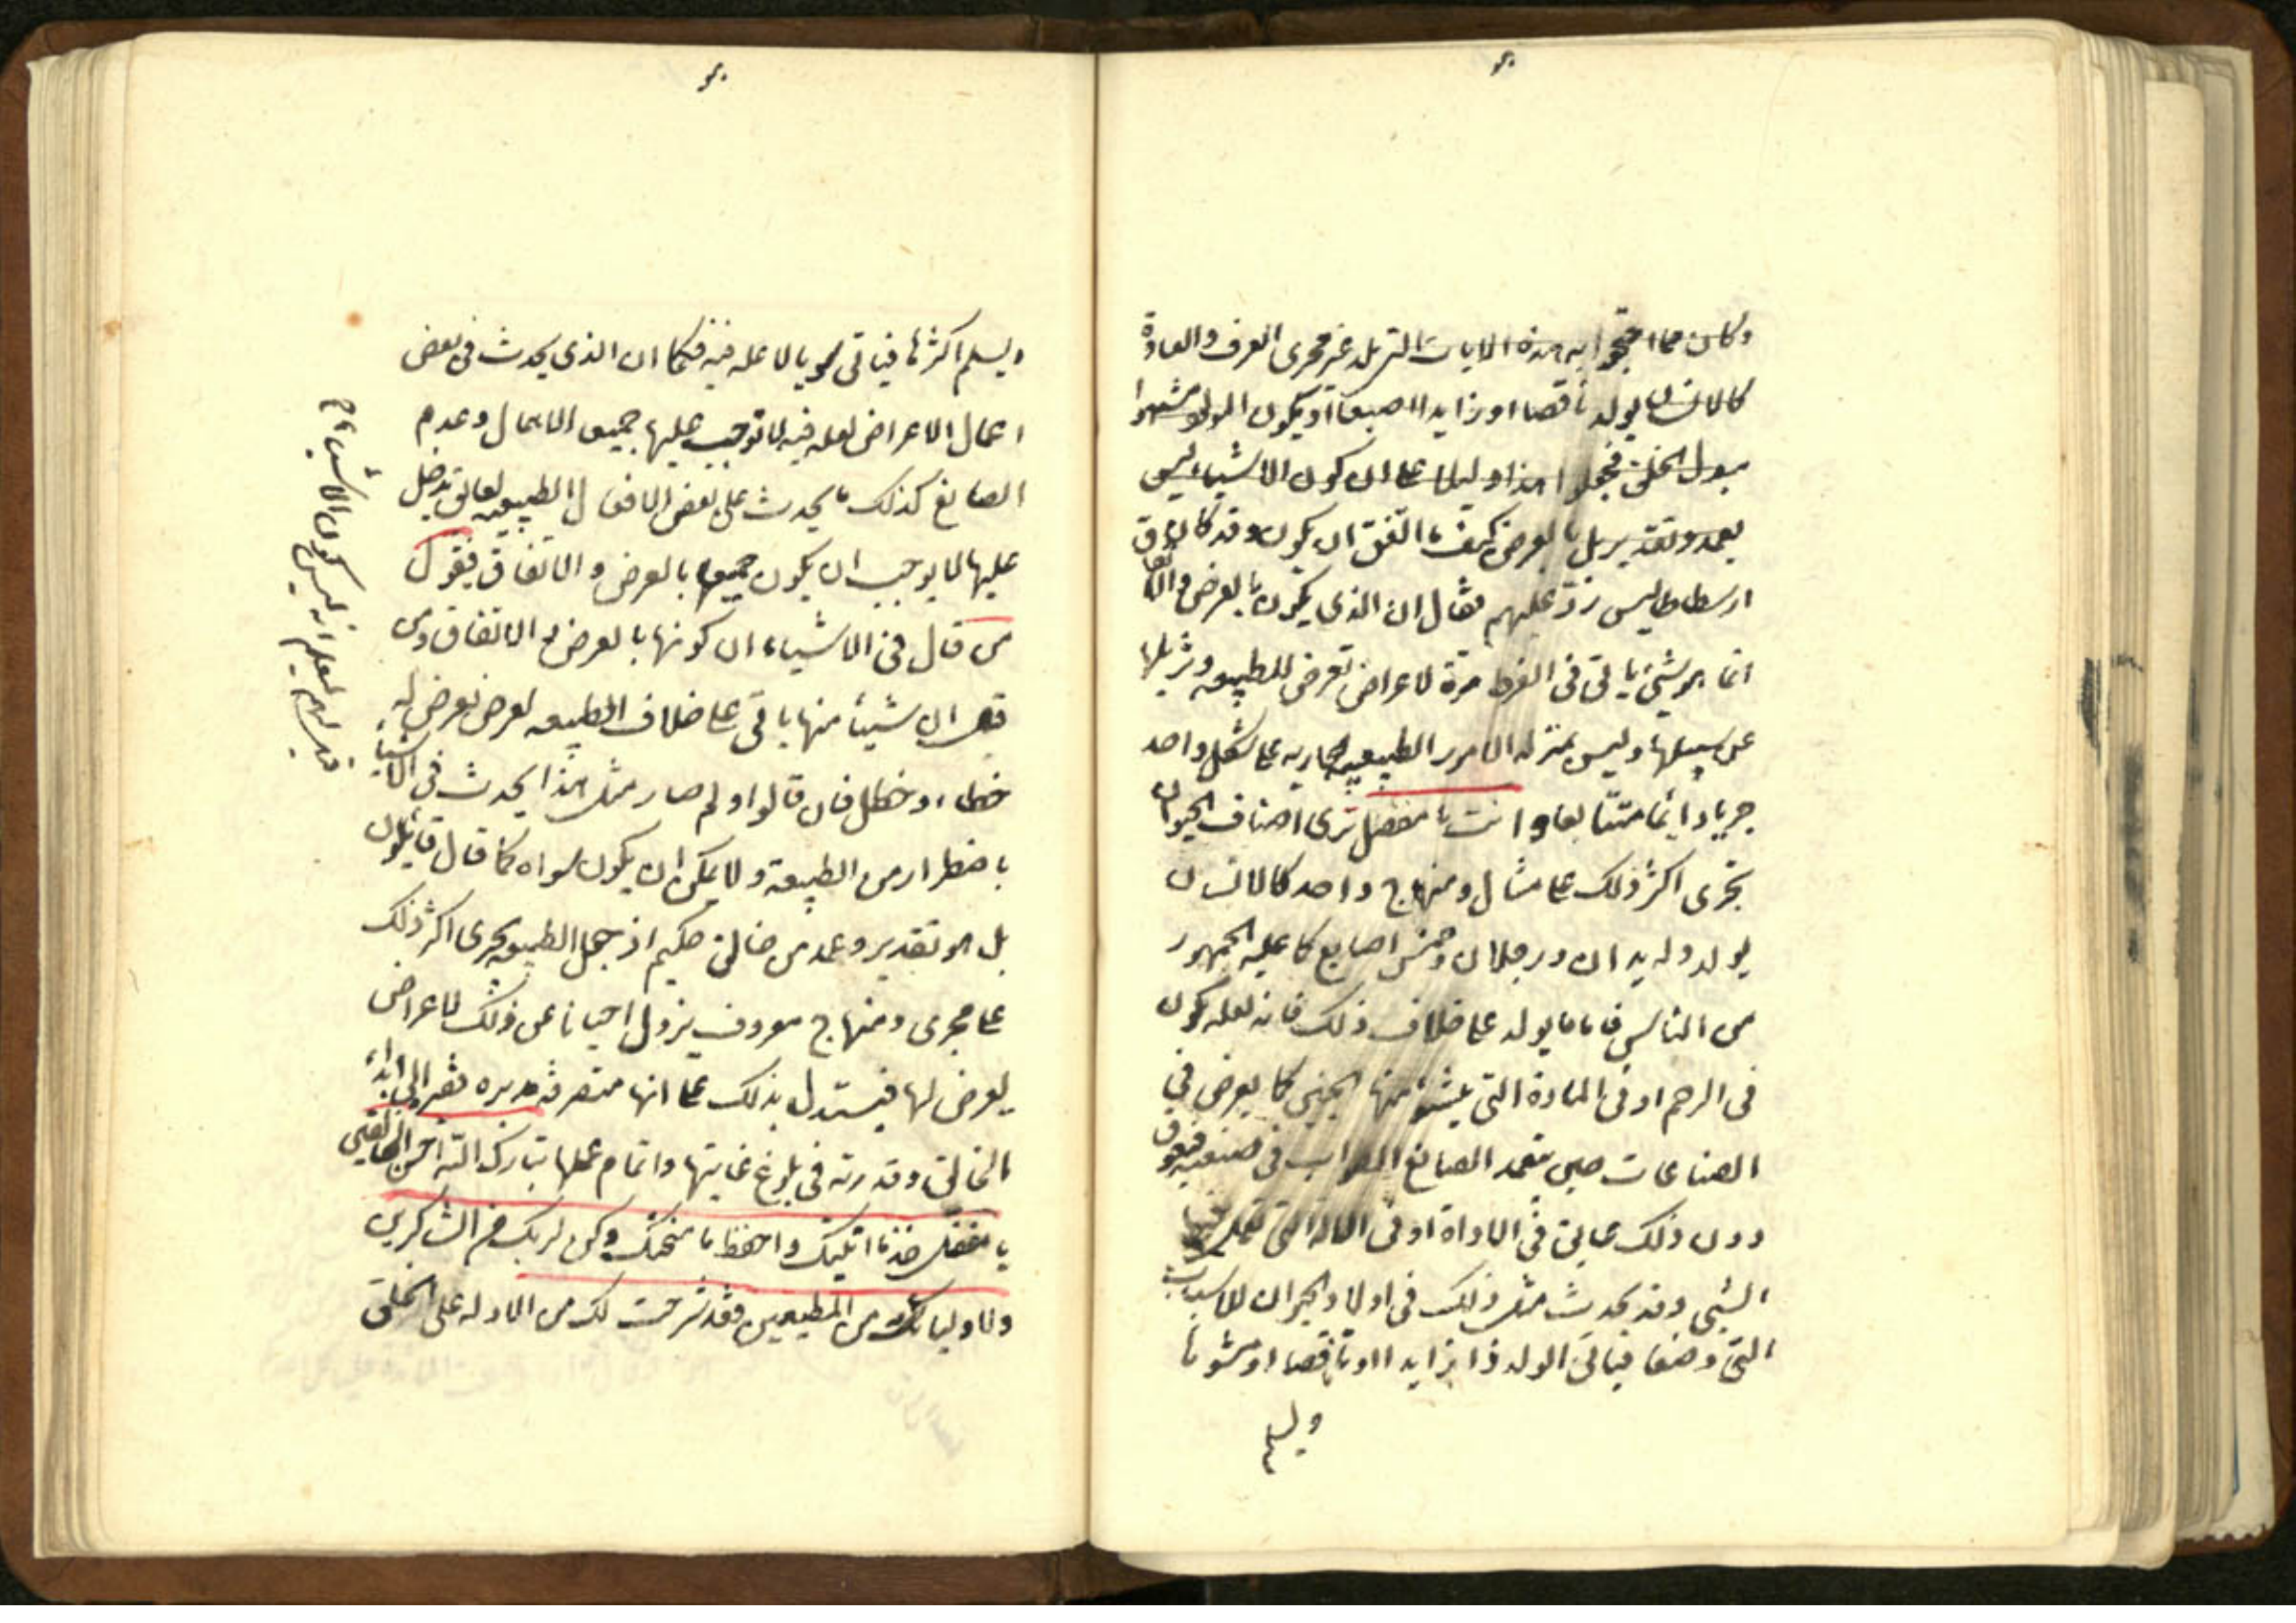 وكان مما احتجوا به هذه الايات التي تلد غير مجرى العرف والعادة
كالانسان يولد ناقصا او زايدا اصبعا او يكون المولود مشوها
مبدل الخلق فجعلوا هذا دليلا على ان كون الاشياء ليس
بعمد وتقدير بل بالعرض كيف ما اتفق ان يكون وقد كان
ارسطاطاليس رد عليهم فقال ان الذي يكون بالعرض والاتفاق
انما هو شيء ياتى فى الفرط مرة لاعراض تعرض للطبيعه فتزيلها
عن سبيلها وليس بمنزله الامور الطبيعيه الجاريه على شكل واحد
جريا دايما متتابعا وانت يا مفضل ترى اصناف الحيوان
تجرى اكثر ذلك على مثال ومنهاج واحد كالانسان
يولد وله يدان ورجلان وخمس اصابع كما عليه الجمهور
من الناس فاما ما يولد على خلاف ذلك فانه لعله تكون
فى الرحم او فى المادة التى ينشؤ منها الجنين كما يعرض فى
الصناعات حين يتعمد الصانع الصواب فى صنعته فيعوق
دون ذلك عايق فى الاداة او فى الاله التى تعمل فيها
الشيى وقد يحدث مثل ذلك فى اولاد الحيوان للاسباب
التى وصفنا فياتى الولد زايدا او ناقصا او مشوها
ويسلم
ويسلم اكثرها فياتى سويا لا عله فيه فكما ان الذى يحدث فى بعض
اعمال الاعراض لعله فيه لا توجب عليها جميعا الاهمال وعدم
الصانع كذلك ما يحدث على بعض الافعال الطبيعيه لعايق يدخل
عليها لا يوجب ان يكون جميعها بالعرض والاتفاق فقول
من قال فى الاشياء ان كونها بالعرض والاتفاق من
قبل ان شيئا منها ياتى على خلاف الطبيعه لعرض يعرض له
خطاء وخطل فان قالوا ولم صار مثل هذا يحدث فى الاشياء
قيل لهم ليعلم انه ليس كون الاشياء
باضطرار من الطبيعة ولا يمكن ان يكون سواه كما قال قائلون
بل هو تقدير وعمد من خالق حكيم اذ جعل الطبيعه تجرى اكثر ذلك
على مجرى ومنهاج معروف يزول احيانا عن ذلك لاعراض
يعرض لها فيستدل بذلك على انها متصرفة مدبره فقيره الى ابداء
الخالق وقدرته فى بلوغ غايتها واتمام عملها تبارك الله احسن الخالقين
يا مفضل خذ ما اتيتك واحفظ ما منحتك وكن لربك من الشاكرين
ولاوليائه من المطيعين فقد شرحت لك من الادله على الخلق